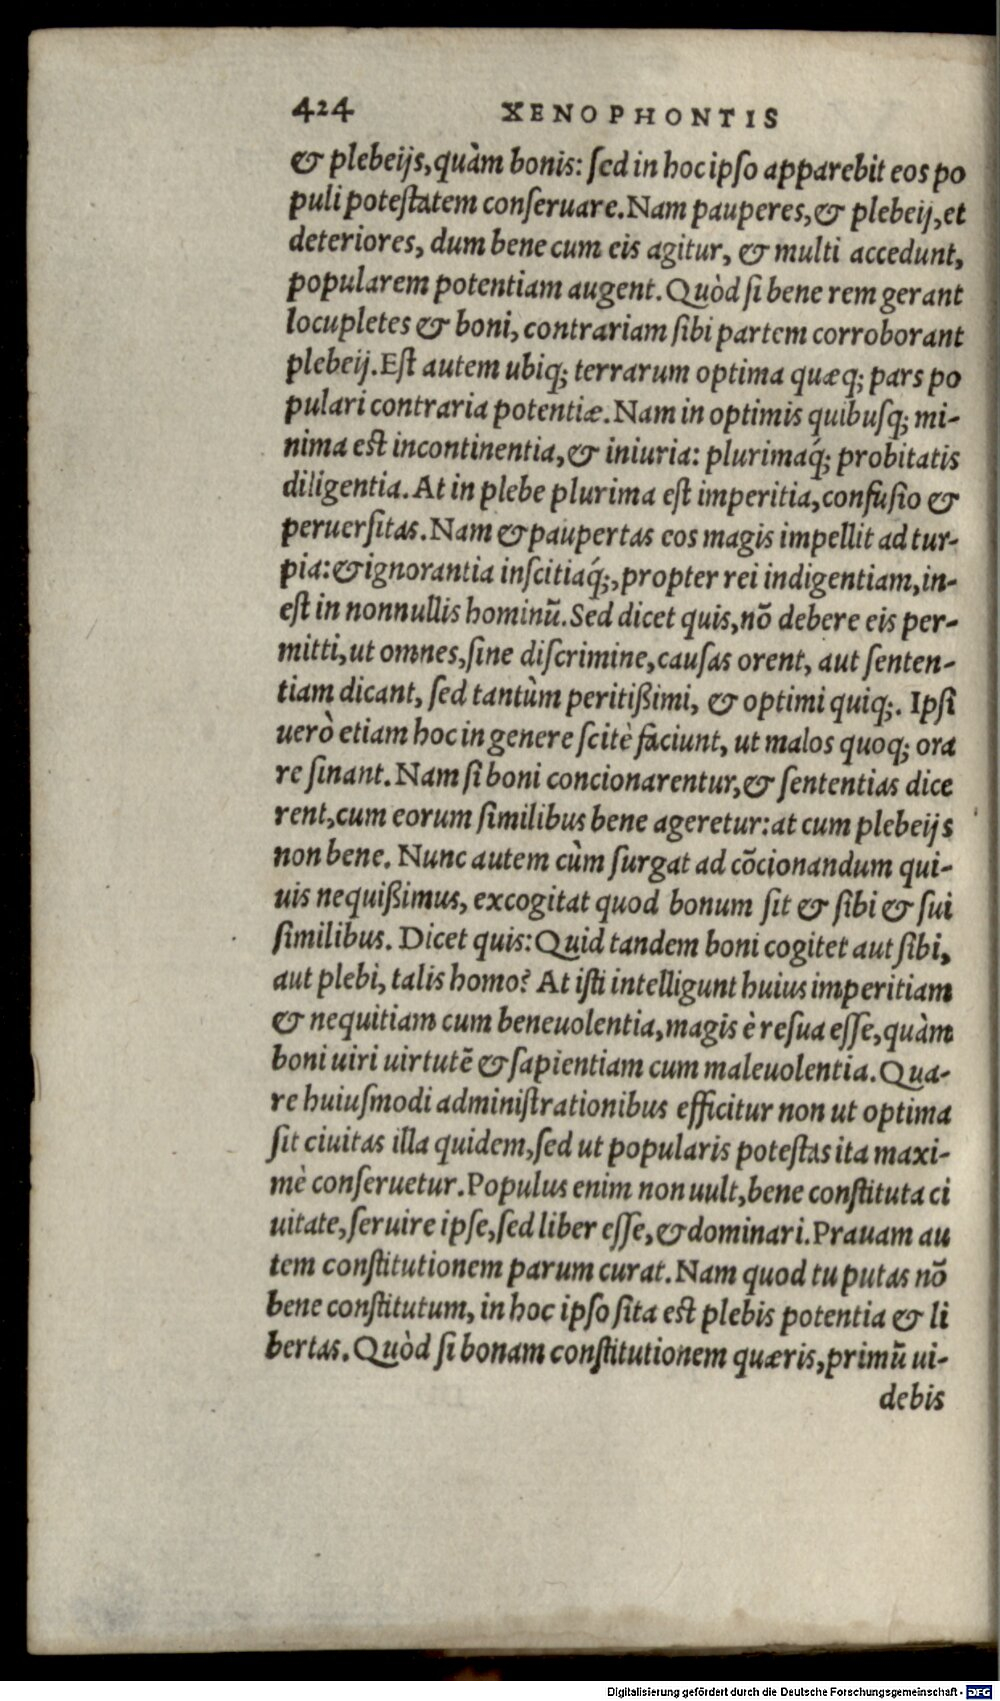 424 XENOPHONTIS
& plebeijs, quàm bonis: ſed in hoc ipſo apparebit eos po
puli poteſtatem conſeruare. Nam pauperes, & plebeij, et
deteriores, dum bene cum eis agitur, & multi accedunt,
popularem potentiam augent. Quòd ſi bene rem gerant
locupletes & boni, contrariam ſibi partem corroborant
plebeij. Eſt autem ubiq; terrarum optima quæq; pars po
pulari contraria potentiæ. Nam in optimis quibuſq; mi-
nima eſt incontinentia, & iniuria: plurimaq́; probitatis
diligentia. At in plebe plurima eſt imperitia, confuſio &
peruerſitas. Nam & paupertas eos magis impellit ad tur-
pia: & ignorantia inſcitiaq́;, propter rei indigentiam, in-
eſt in nonnullis hominū. Sed dicet quis, nō debere eis per-
mitti, ut omnes, ſine diſcrimine, cauſas orent, aut ſenten-
tiam dicant, ſed tantùm peritißimi, & optimi quiq;. Ipſi
uerò etiam hoc in genere ſcitè faciunt, ut malos quoq; ora
re ſinant. Nam ſi boni concionarentur, & ſententias dice
rent, cum eorum ſimilibus bene ageretur: at cum plebeijs
non bene. Nunc autem cùm ſurgat ad cōcionandum qui-
uis nequißimus, excogitat quod bonum ſit & ſibi & ſui
ſimilibus. Dicet quis: Quid tandem boni cogitet aut ſibi,
aut plebi, talis homo? At iſti intelligunt huius imperitiam
& nequitiam cum beneuolentia, magis è re ſua eſſe, quàm
boni uiri uirtutē & ſapientiam cum maleuolentia. Qua-
re huiuſmodi adminiſtrationibus efficitur non ut optima
ſit ciuitas illa quidem, ſed ut popularis poteſtas ita maxi-
mè conſeruetur. Populus enim non uult, bene conſtituta ci
uitate, ſeruire ipſe, ſed liber eſſe, & dominari. Prauam au
tem conſtitutionem parum curat. Nam quod tu putas nō
bene conſtitutum, in hoc ipſo ſita eſt plebis potentia & li
bertas. Quòd ſi bonam conſtitutionem quæris, primū ui-
debis
Digitalisierung gefördert durch die Deutsche Forschungsgemeinschaft - DFG